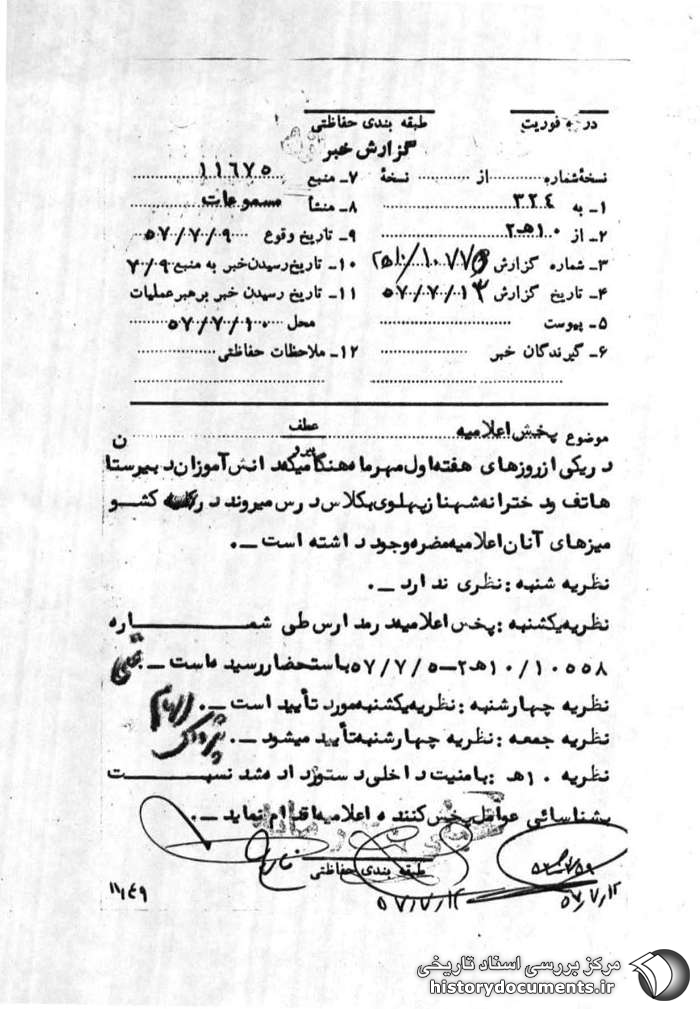 درجه فوریت
طبقه بندی حفاظتی
گزارش خبر
نسخهٔ شماره .......... از .......... نسخهٔ
۱ـ به ۳۲۴
۲ـ از ۱۰هـ۲
۳ـ شماره گزارش
۴ـ تاریخ گزارش ۵۷/۷/۱۳
۵ـ پیوست
۶ـ گیرندگان خبر
۷ـ منبع ۱۱۶۷۵
۸ـ منشأ مسموعات
۹ـ تاریخ وقوع ۵۷/۷/۹
۱۰ـ تاریخ رسیدن خبر به منبع ۷/۹
۱۱ـ تاریخ رسیدن خبر برهبر عملیات
محل ۵۷/۷/۱۰
۱۲ـ ملاحظات حفاظتی
موضوع پخش اعلامیه عطف
در یکی از روزهای هفته اول مهرماه هنگامیکه دانش آموزان دبیرستان
هاتف و دخترانه شهناز پهلوی بکلاس درس میروند در کشو
میزهای آنان اعلامیه مضره وجود داشته است ـ.
نظریه شنبه : نظری ندارد ـ.
نظریه یکشنبه : پخش اعلامیه در مدارس طی شماره
۱۰/۱۰۵۵۸هـ۲ـ۵۷/۷/۵ باستحضار رسیده است ـ.
نظریه چهارشنبه : نظریه یکشنبه مورد تأیید است ـ.
نظریه جمعه : نظریه چهارشنبه تأیید میشود ـ.
نظریه ۱۰هـ : بامنیت داخلی دستور داده شد نسبت
بشناسائی عوامل پخش کننده اعلامیه اقدام نماید ـ.
طبقه بندی حفاظتی
۵۷/۷/۱۲
۵۷/۷/۱۲
مرکز بررسی اسناد تاریخی
historydocuments.ir